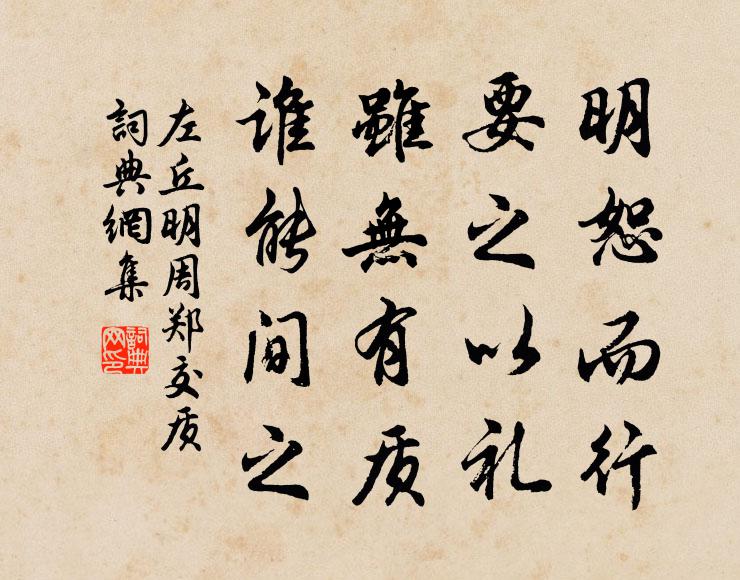 明恕而行
要之以礼
雖無有质
谁能间之
左丘明周郑交质
詞典網集
詞典网印